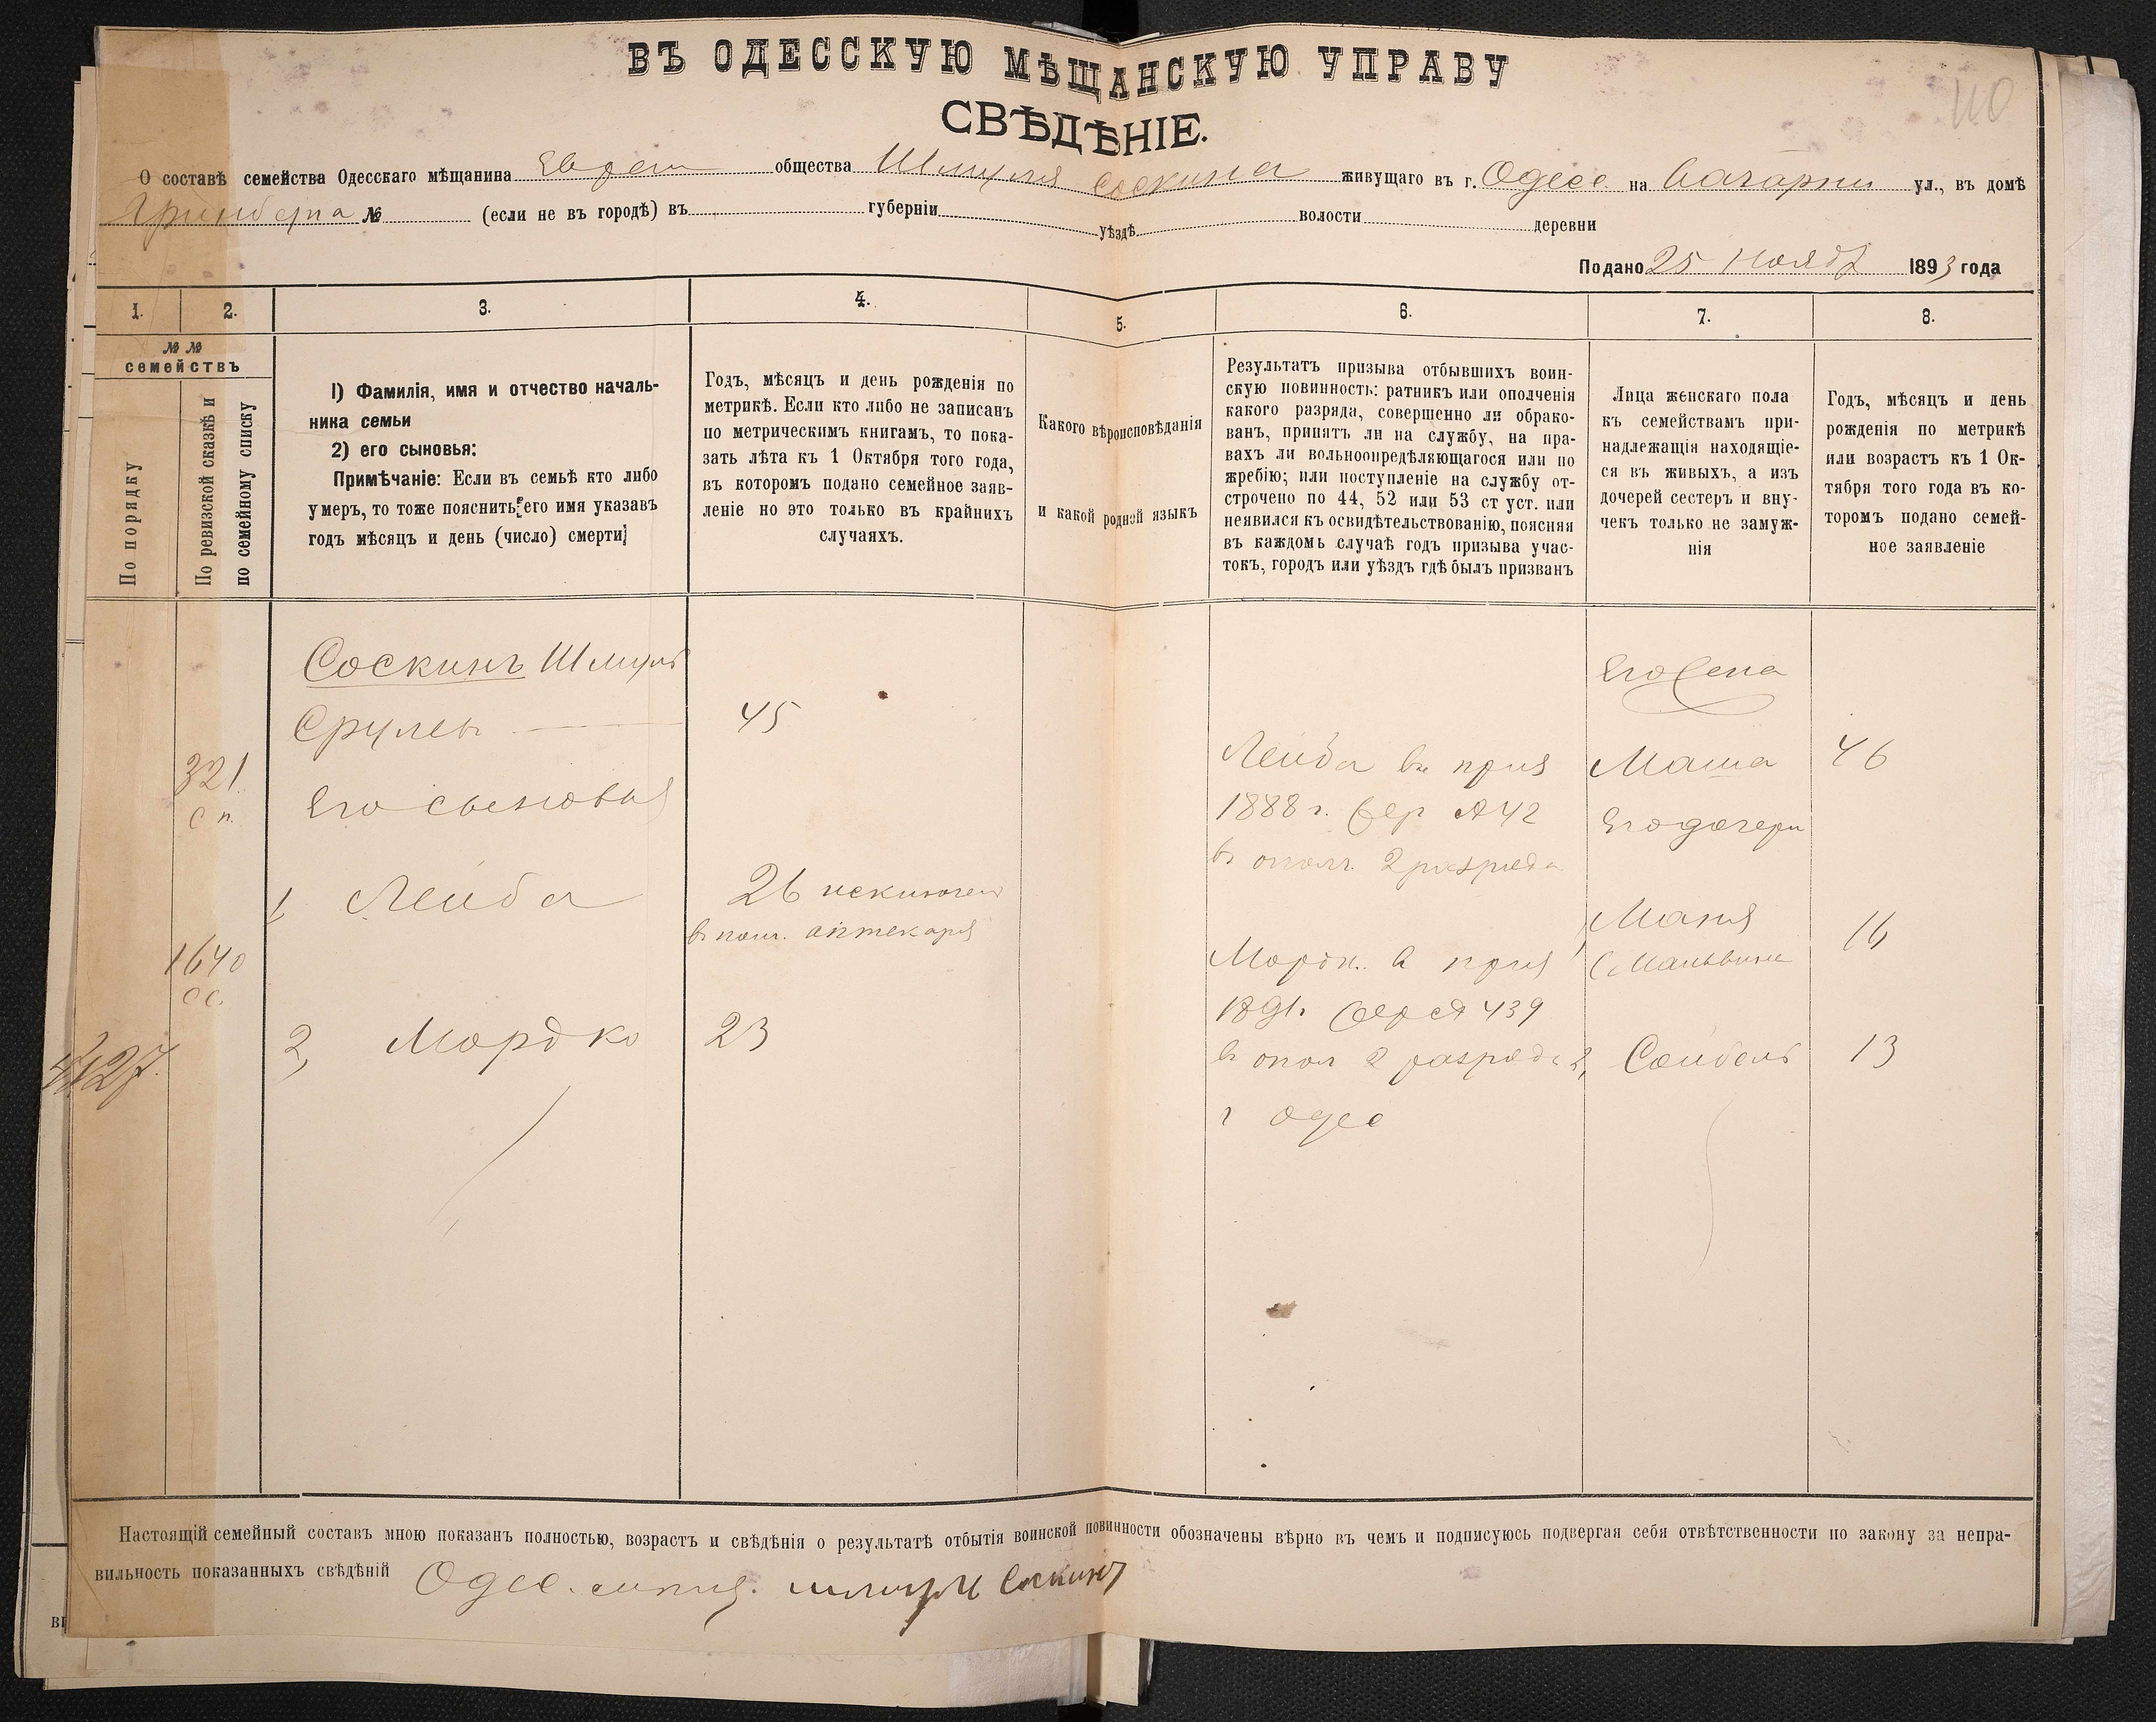 ВЪ ОДЕССКУЮ МѢЩАНСКУЮ УПРАВУ
СВѢДѢНІЕ.
110
О составѣ семейства Одесскаго мѣщанина общества Шмуля Соскина живущаго въ г. Одесс на ул., въ домѣ
Гринберга № (если не въ городѣ) въ губерніи уѣздѣ волости деревни
Подано 25 Нояб 1893 года
1. 2. 3. 4. 5. 6. 7. 8.
№ №
семействъ
По порядку
По ревизской сказкѣ и
по семейному списку
1) Фамилія, имя и отчество началь-
ника семьи
2) его сыновья:
Примѣчаніе: Если въ семьѣ кто либо
умеръ, то тоже пояснить его имя указавъ
годъ мѣсяцъ и день (число) смерти
Годъ, мѣсяцъ и день рожденія по
метрикѣ. Если кто либо не записанъ
по метрическимъ книгамъ, то пока-
зать лѣта къ 1 Октября того года,
въ которомъ подано семейное заяв-
леніе но это только въ крайнихъ
случаяхъ.
Какого вѣроисповѣданія
и какой родной языкъ
Результатъ призыва отбывшихъ воин-
скую повинность: ратникъ или ополченія
какого разряда, совершенно ли обрако-
ванъ, принятъ ли на службу, на пра-
вахъ ли вольноопредѣляющагося или по
жребію; или поступленіе на службу от-
строчено по 44, 52 или 53 ст уст. или
неявился къ освидѣтельствованію, поясняя
въ каждомъ случаѣ годъ призыва учас-
токъ, городъ или уѣздъ гдѣ былъ призванъ
Лица женскаго пола
къ семействамъ при-
надлежащія находящіе-
ся въ живыхъ, а изъ
дочерей сестеръ и вну-
чекъ только не замуж-
нія
Годъ, мѣсяцъ и день
рожденія по метрикѣ
или возрастъ къ 1 Ок-
тября того года въ ко-
торомъ подано семей-
ное заявленіе
321
с п.
1640
сс.
Соскинъ Шмуль
Срулев
Его сыновья
1 Лейба
2, Мордко
45
26 исключен
в аптекаря
23
Лейба в приз
1888 г. жер № 42
в ополч. 2 разряда
Мордк. в приз
1891. 439
в опол 2 разряда
г Одес
Его жена
Маша
Его дочери
1, Маня
(Мальвина
2, Сейбель
46
16
13
Настоящій семейный составъ мною показанъ полностью, возрастъ и свѣдѣнія о результатѣ отбытія воинской повинности обозначены вѣрно въ чемъ и подписуюсь подвергая себя отвѣтственности по закону за непра-
вильность показанныхъ свѣдѣній Одес. Шмуль Соскинъ